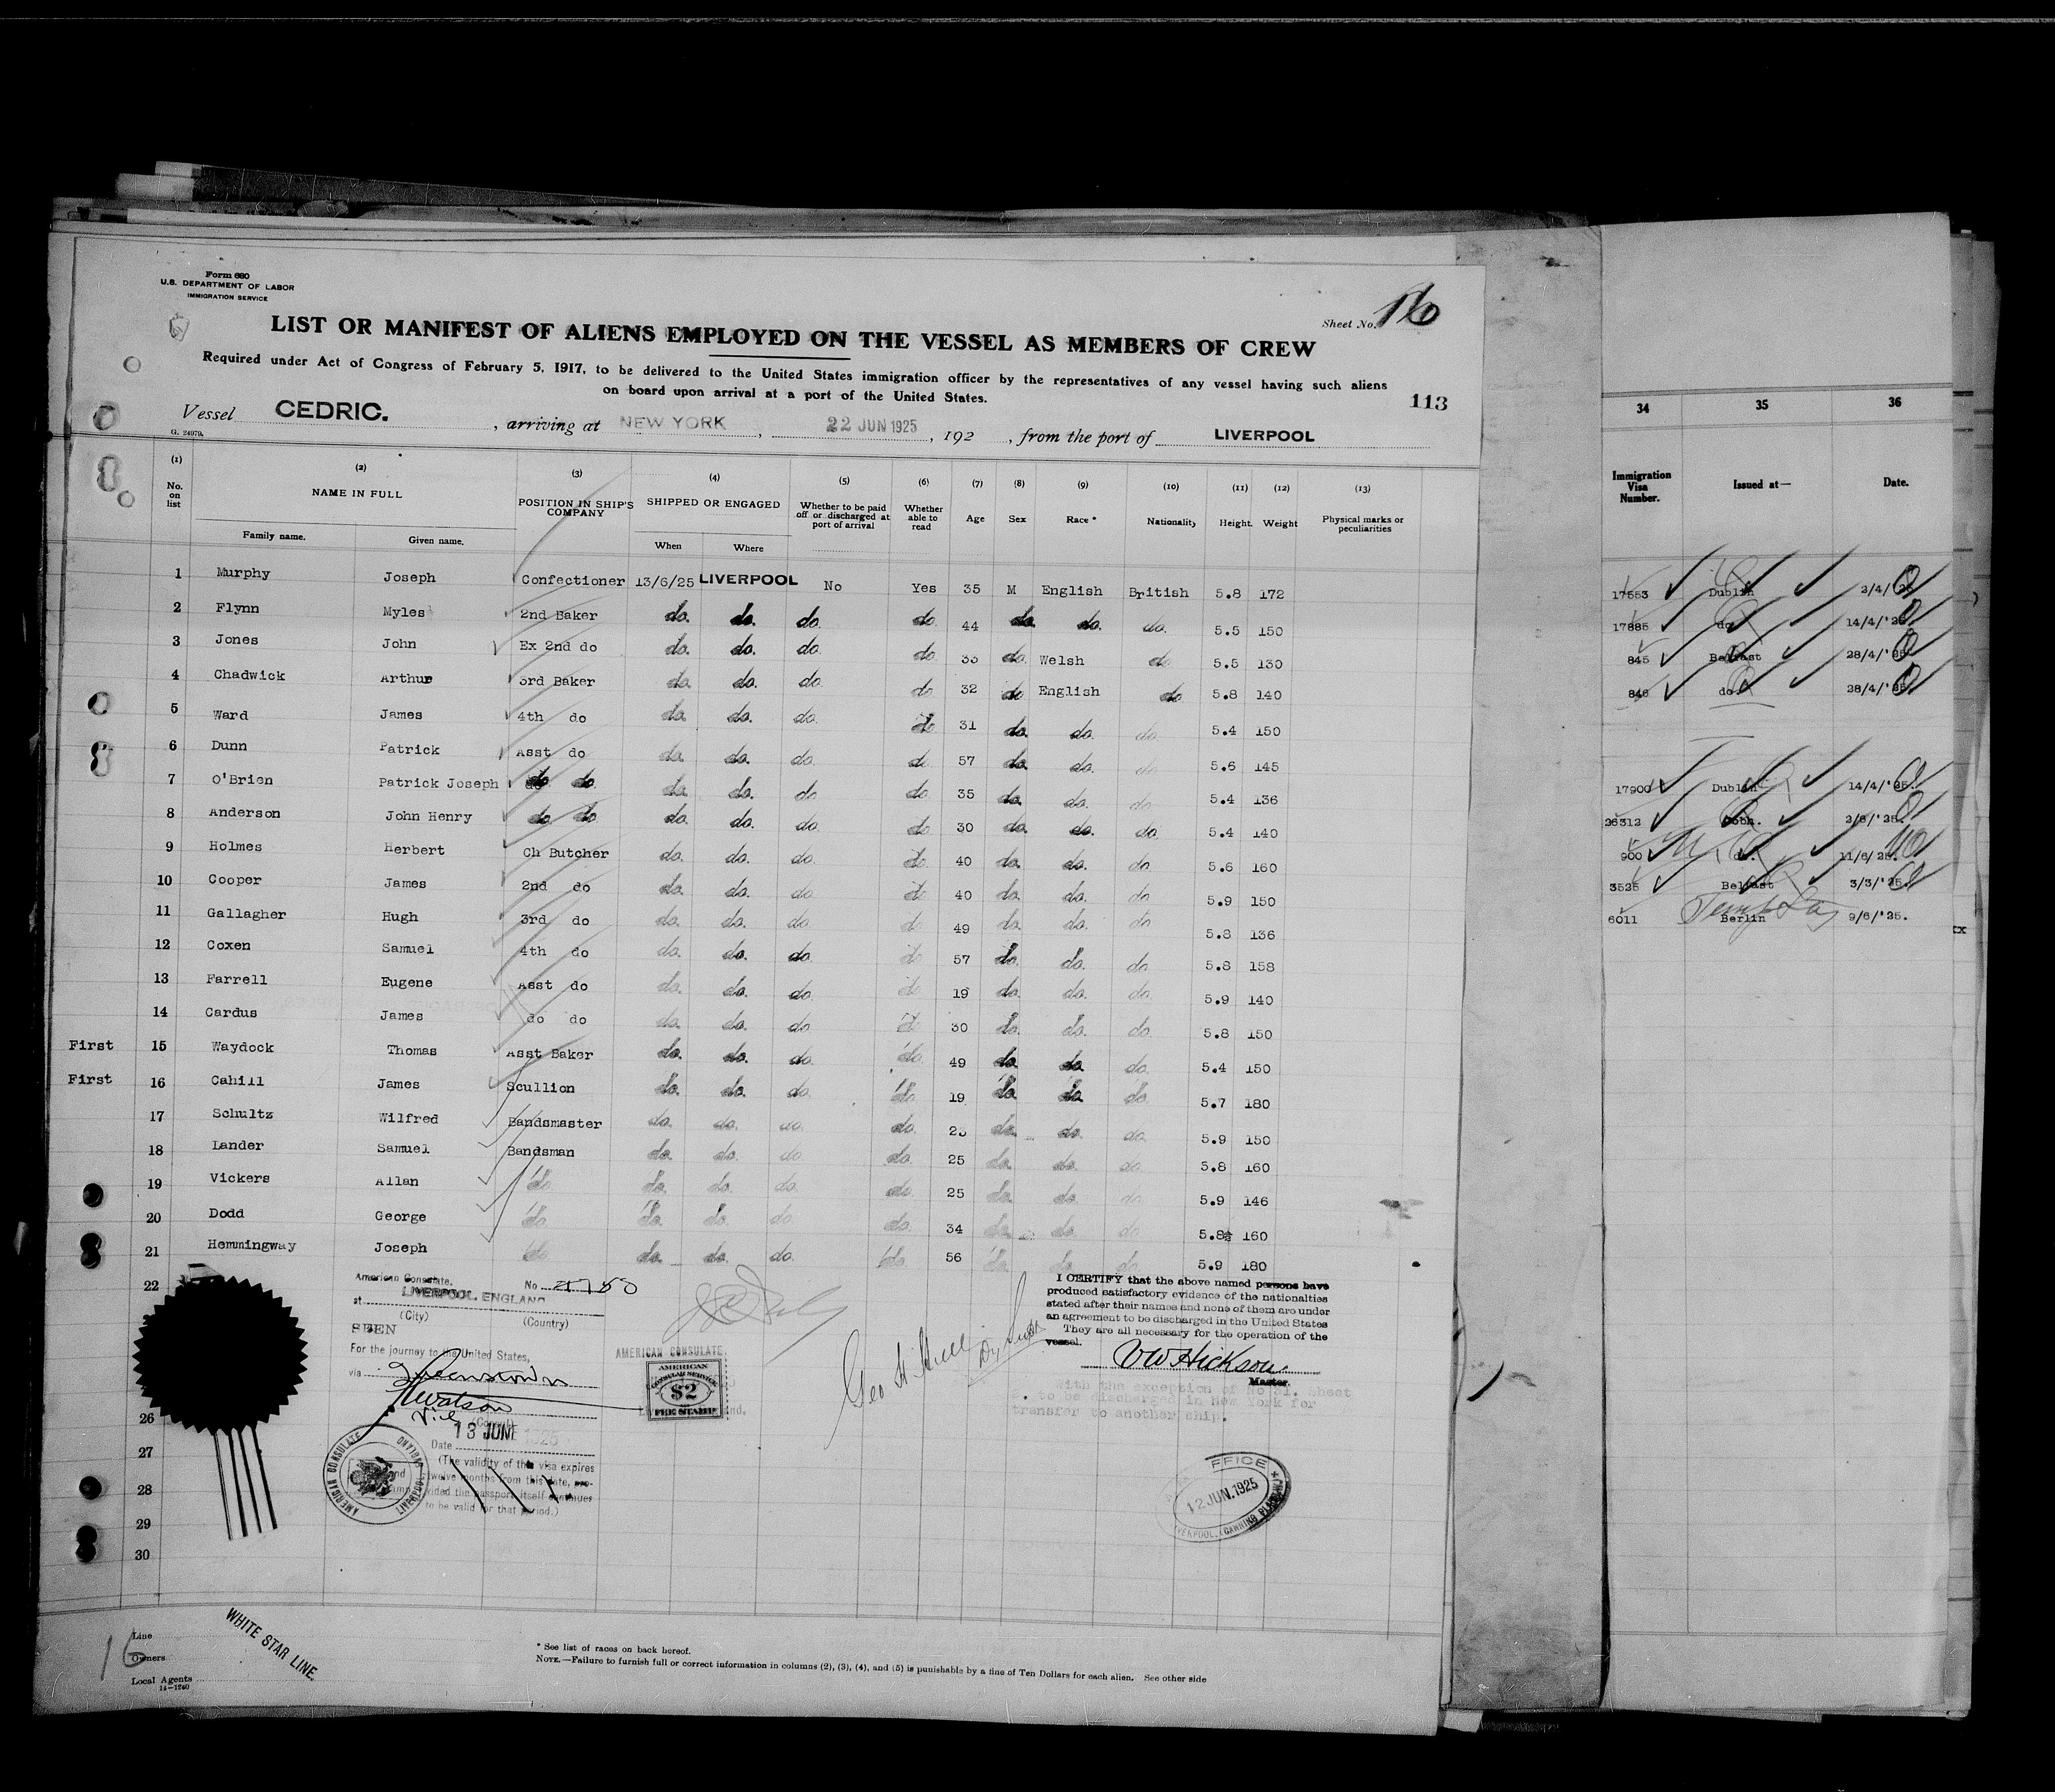 Form 680
U.S. DEPARTMENT OF LABOR
IMMIGRATION SERVICE
Sheet No. 16
LIST OR MANIFEST OF ALIENS EMPLOYED ON THE VESSEL AS MEMBERS OF CREW
Required under Act of Congress of February 5, 1917, to be delivered to the United States immigration officer by the representatives of any vessel having such aliens
on board upon arrival at a port of the United States.
113
Vessel CEDRIC. , arriving at NEW YORK , 22 JUN 1925 , 192 , from the port of LIVERPOOL
G. 24979.
(1) (2) (3) (4) (5) (6) (7) (8) (9) (10) (11) (12) (13)
No. on list NAME IN FULL POSITION IN SHIP'S COMPANY SHIPPED OR ENGAGED Whether to be paid off or discharged at port of arrival Whether able to read Age Sex Race * Nationality Height. Weight Physical marks or peculiarities
Family name. Given name. When Where
1 Murphy Joseph Confectioner 13/6/25 LIVERPOOL No Yes 35 M English British 5.8 172
2 Flynn Myles 2nd Baker do. do. do. do 44 do. do. do. 5.5 150
3 Jones John Ex 2nd do do. do. do. do 33 do. Welsh do 5.5 130
4 Chadwick Arthur 3rd Baker do. do. do. do 32 do English do 5.8 140
5 Ward James 4th do do. do. do. do 31 do. do. do. 5.4 150
6 Dunn Patrick Asst do do. do. do. do. 57 do. do. do 5.6 145
7 O'Brien Patrick Joseph do do. do. do. do do. 35 do. do. do 5.4 136
8 Anderson John Henry do do do. do. do do. 30 do. do. do. 5.4 140
9 Holmes Herbert Ch Butcher do. do. do do. 40 do. do. do 5.6 160
10 Cooper James 2nd do do. do. do do 40 do. do. do 5.9 150
11 Gallagher Hugh 3rd do do. do. do. do 49 do. do. do 5.8 136
12 Coxen Samuel 4th do do. do. do. do 57 do. do. do 5.8 158
13 Farrell Eugene Asst do do. do. do. do 19 do. do. do. 5.9 140
14 Cardus James do do do. do. do do 30 do. do. do. 5.8 150
First 15 Waydock Thomas Asst Baker do. do. do. do. 49 do. do. do. 5.4 150
First 16 Cahill James Scullion do. do. do. do. 19 do. do. do. 5.7 180
17 Schultz Wilfred Bandsmaster do. do. do. do. do. do. do. 5.9 150
18 Lander Samuel Bandsman do. do. do. do. 25 do. do. do. 5.8 160
19 Vickers Allan do. do. do. do. do. 25 do. do. do 5.9 146
20 Dodd George do. do. do. do. do. 34 do. do. do 5.8½ 160
21 Hemmingway Joseph do. do. do. do. do. 56 do. do. do. 5.9 180
22
26
27
28
29
30
American Consulate. No
at LIVERPOOL, ENGLAND
(City) (Country)
SEEN
For the journey to the United States,
via Queenstown
Watson
Vice (Consul)
Date 13 JUNE 1925
(The validity of this visa expires
twelve months from this date, pro-
vided the passport itself continues
to be valid for that period.)
AMERICAN CONSULATE LIVERPOOL, ENGLAND
AMERICAN CONSULATE
AMERICAN
CONSULAR SERVICE
$2
FEE STAMP
Geo H Hill
I CERTIFY that the above named persons have
produced satisfactory evidence of the nationalties
stated after their names and none of them are under
an agreement to be discharged in the United States
They are all necessary for the operation of the
vessel.
VW Hickson
Master.
With the exception of No 31. Sheet
to be discharged in New York for
transfer to another ship.
OFFICE
12 JUN.1925
LIVERPOOL. (CANNING PLACE)
16
Line
Owners
Local Agents
14—1240
WHITE STAR LINE
* See list of races on back hereof.
NOTE.—Failure to furnish full or correct information in columns (2), (3), (4), and (5) is punishable by a fine of Ten Dollars for each alien. See other side
34 35 36
Immigration Visa Number. Issued at— Date.
17553 Dublin 2/4/'25
17885 do. 14/4/'25
845 Belfast 28/4/'25
846 do. 28/4/'25.
17900 Dublin 14/4/'25.
26312 Cobh. 2/6/'25.
900 do. 11/6/'25.
3525 Belfast 3/3/'25.
6011 Berlin 9/6/'25.